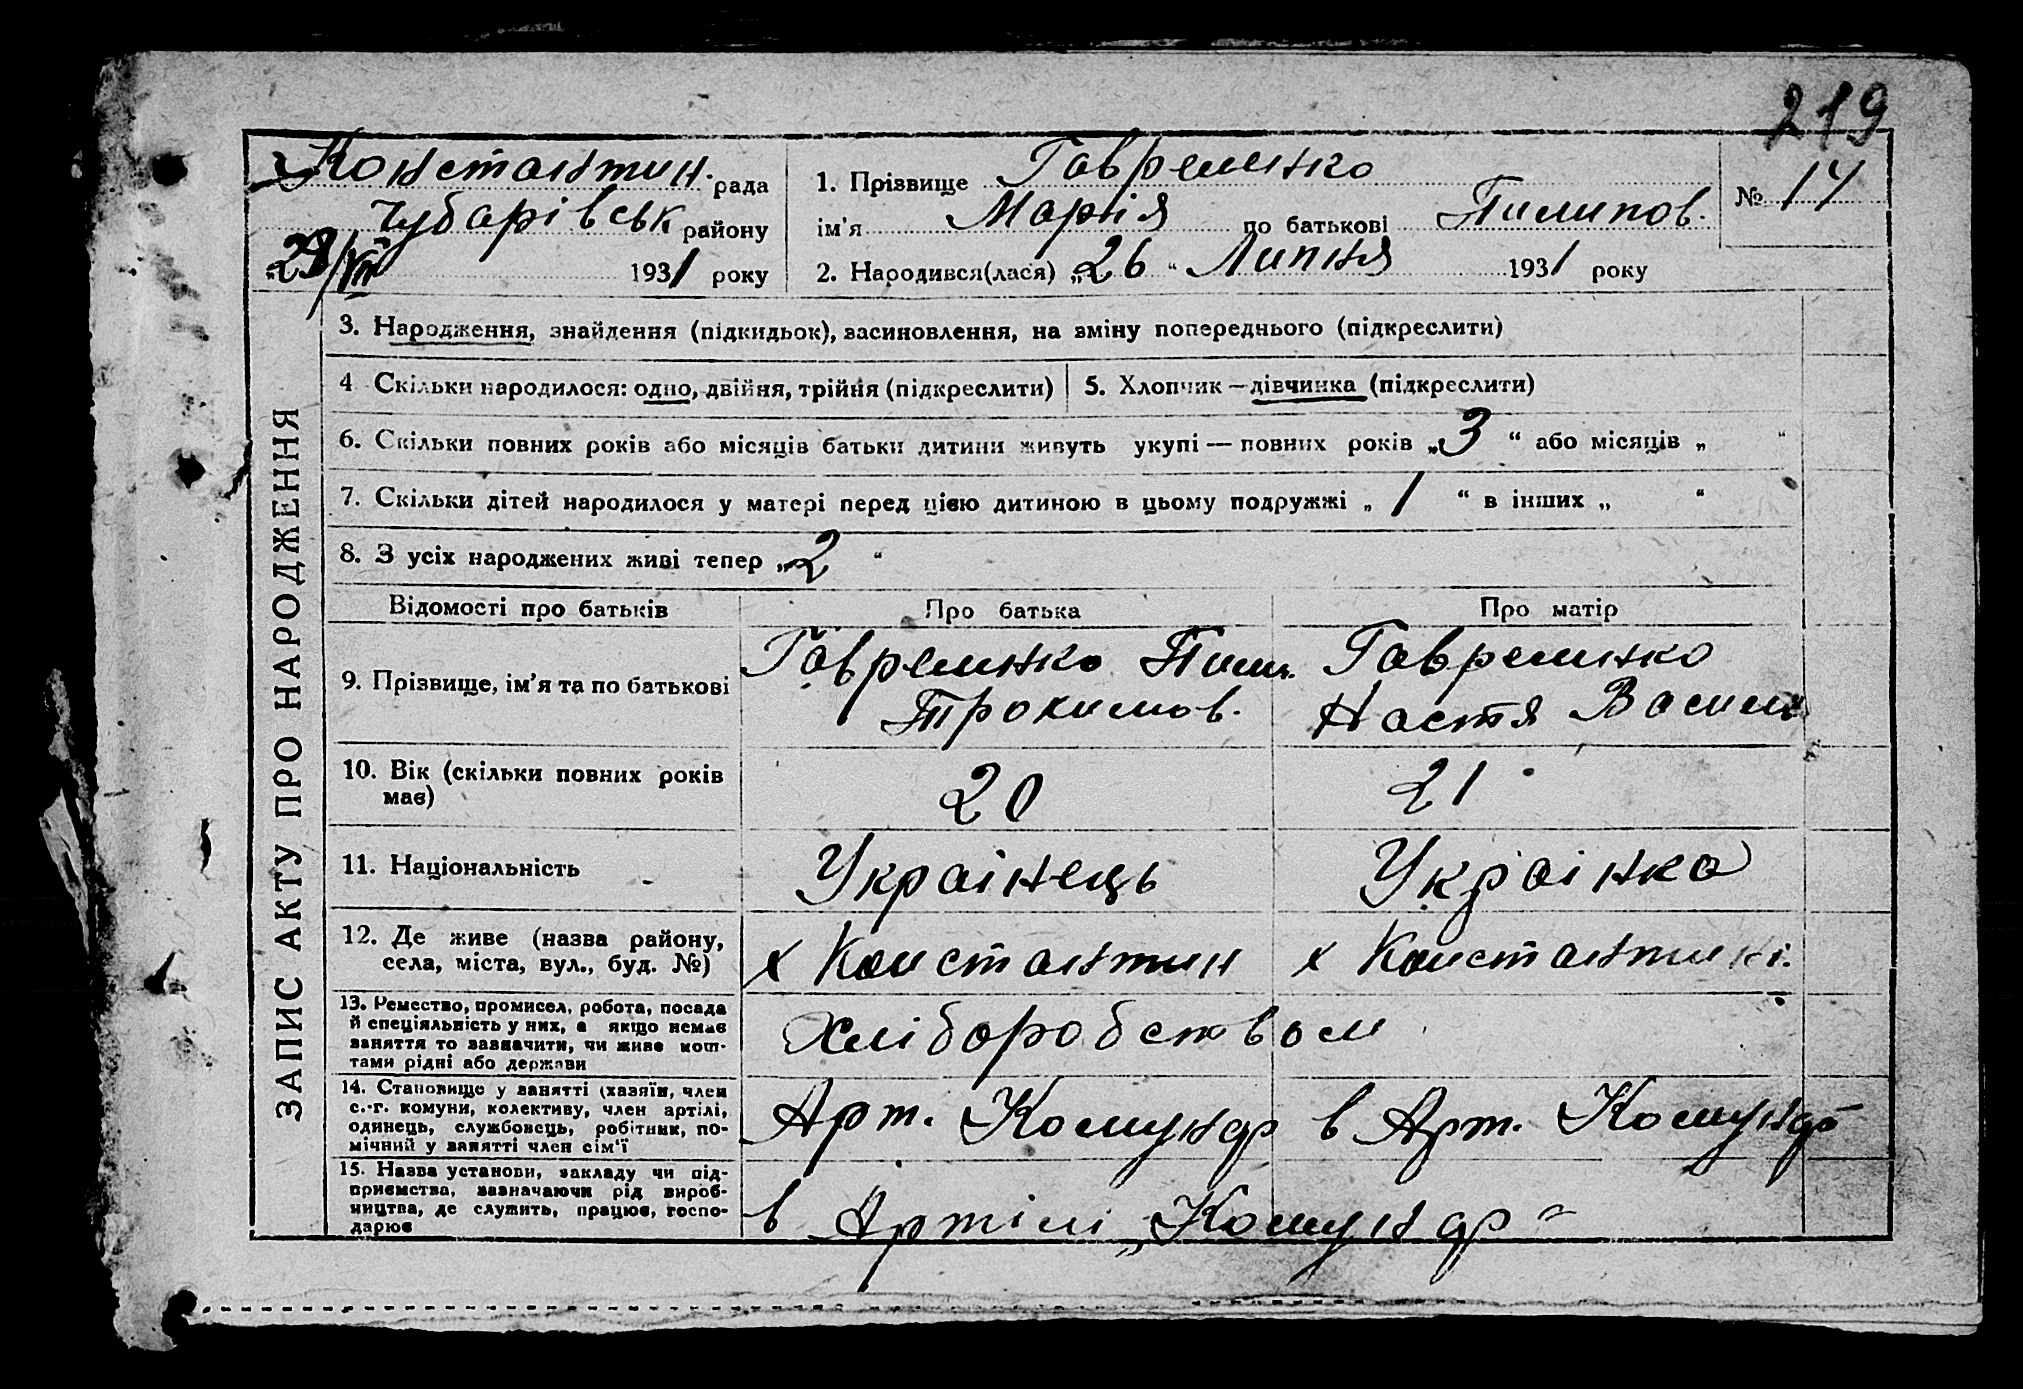 219
Константин. рада
Чубарівськ району
„28/VIII 1931 року
1. Прізвище Гавреленко
ім'я Марія по батькові Пилипов.
2. Народився(лася) „26“ Липня 1931 року
№ 14
ЗАПИС АКТУ ПРО НАРОДЖЕННЯ
3. Народження, знайдення (підкидьок), васиновлення, на зміну попереднього (підкреслити)
4 Скільки народилося: одно, двійня, трійня (підкреслити) 5. Хлопчик — дівчинка (підкреслити)
6. Скільки повних років або місяців батьки дитини живуть укупі — повних років „3“ або місяців „ “
7. Скільки дітей народилося у матері перед цією дитиною в цьому подружжі „1“ в інших „ “
8. З усіх народжених живі тепер „2“
Відомості про батьків Про батька Про матір
9. Прізвище, ім'я та по батькові
Гавреленко Пили.
Трохимов.
Гавреленко
Настя Васили
10. Вік (скільки повних років
має)
20 21
11. Національність Українець Українка
12. Де живе (назва району,
села, міста, вул., буд. №)
х Константин х Константині.
13. Ремество, промисел, робота, посада
й спеціяльність у них, а якщо немає
заняття то зазначити, чи живе кош-
тами рідні або держави
Хліборобством
14. Становище у занятті (хазяїн, член
с.-г. комуни, колективу, член артілі,
одинець, службовець, робітник, по-
мічний у занятті член сім'ї
Арт. Комунар в Арт. Комунар
15. Назва установи, закладу чи під-
приємства, зазначаючи рід вироб-
ництва, де служить, працює, госпо-
дарює
в Артілі „Комунар“